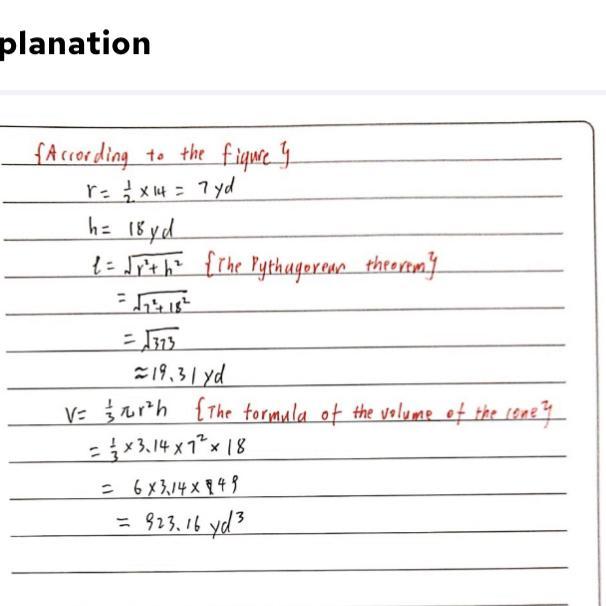 planation
{According to the figure}
r = 1/2 × 14 = 7 yd
h = 18 yd
ℓ = √r²+h² {The Pythagorean theorem}
= √7²+18²
= √373
≈ 19.31 yd
V = 1/3 πr²h {The formula of the volume of the cone}
= 1/3 × 3.14 × 7² × 18
= 6 × 3.14 × 49
= 923.16 yd³